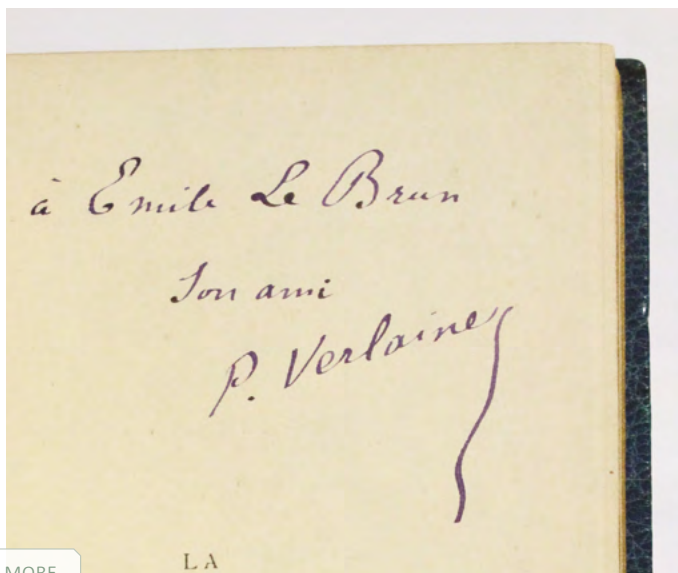 à Emile Le Brun
Son ami
P. Verlaine
LA
MORE